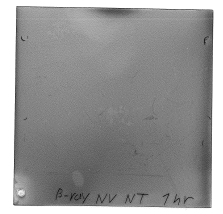 β-ray NV NT 1 hr